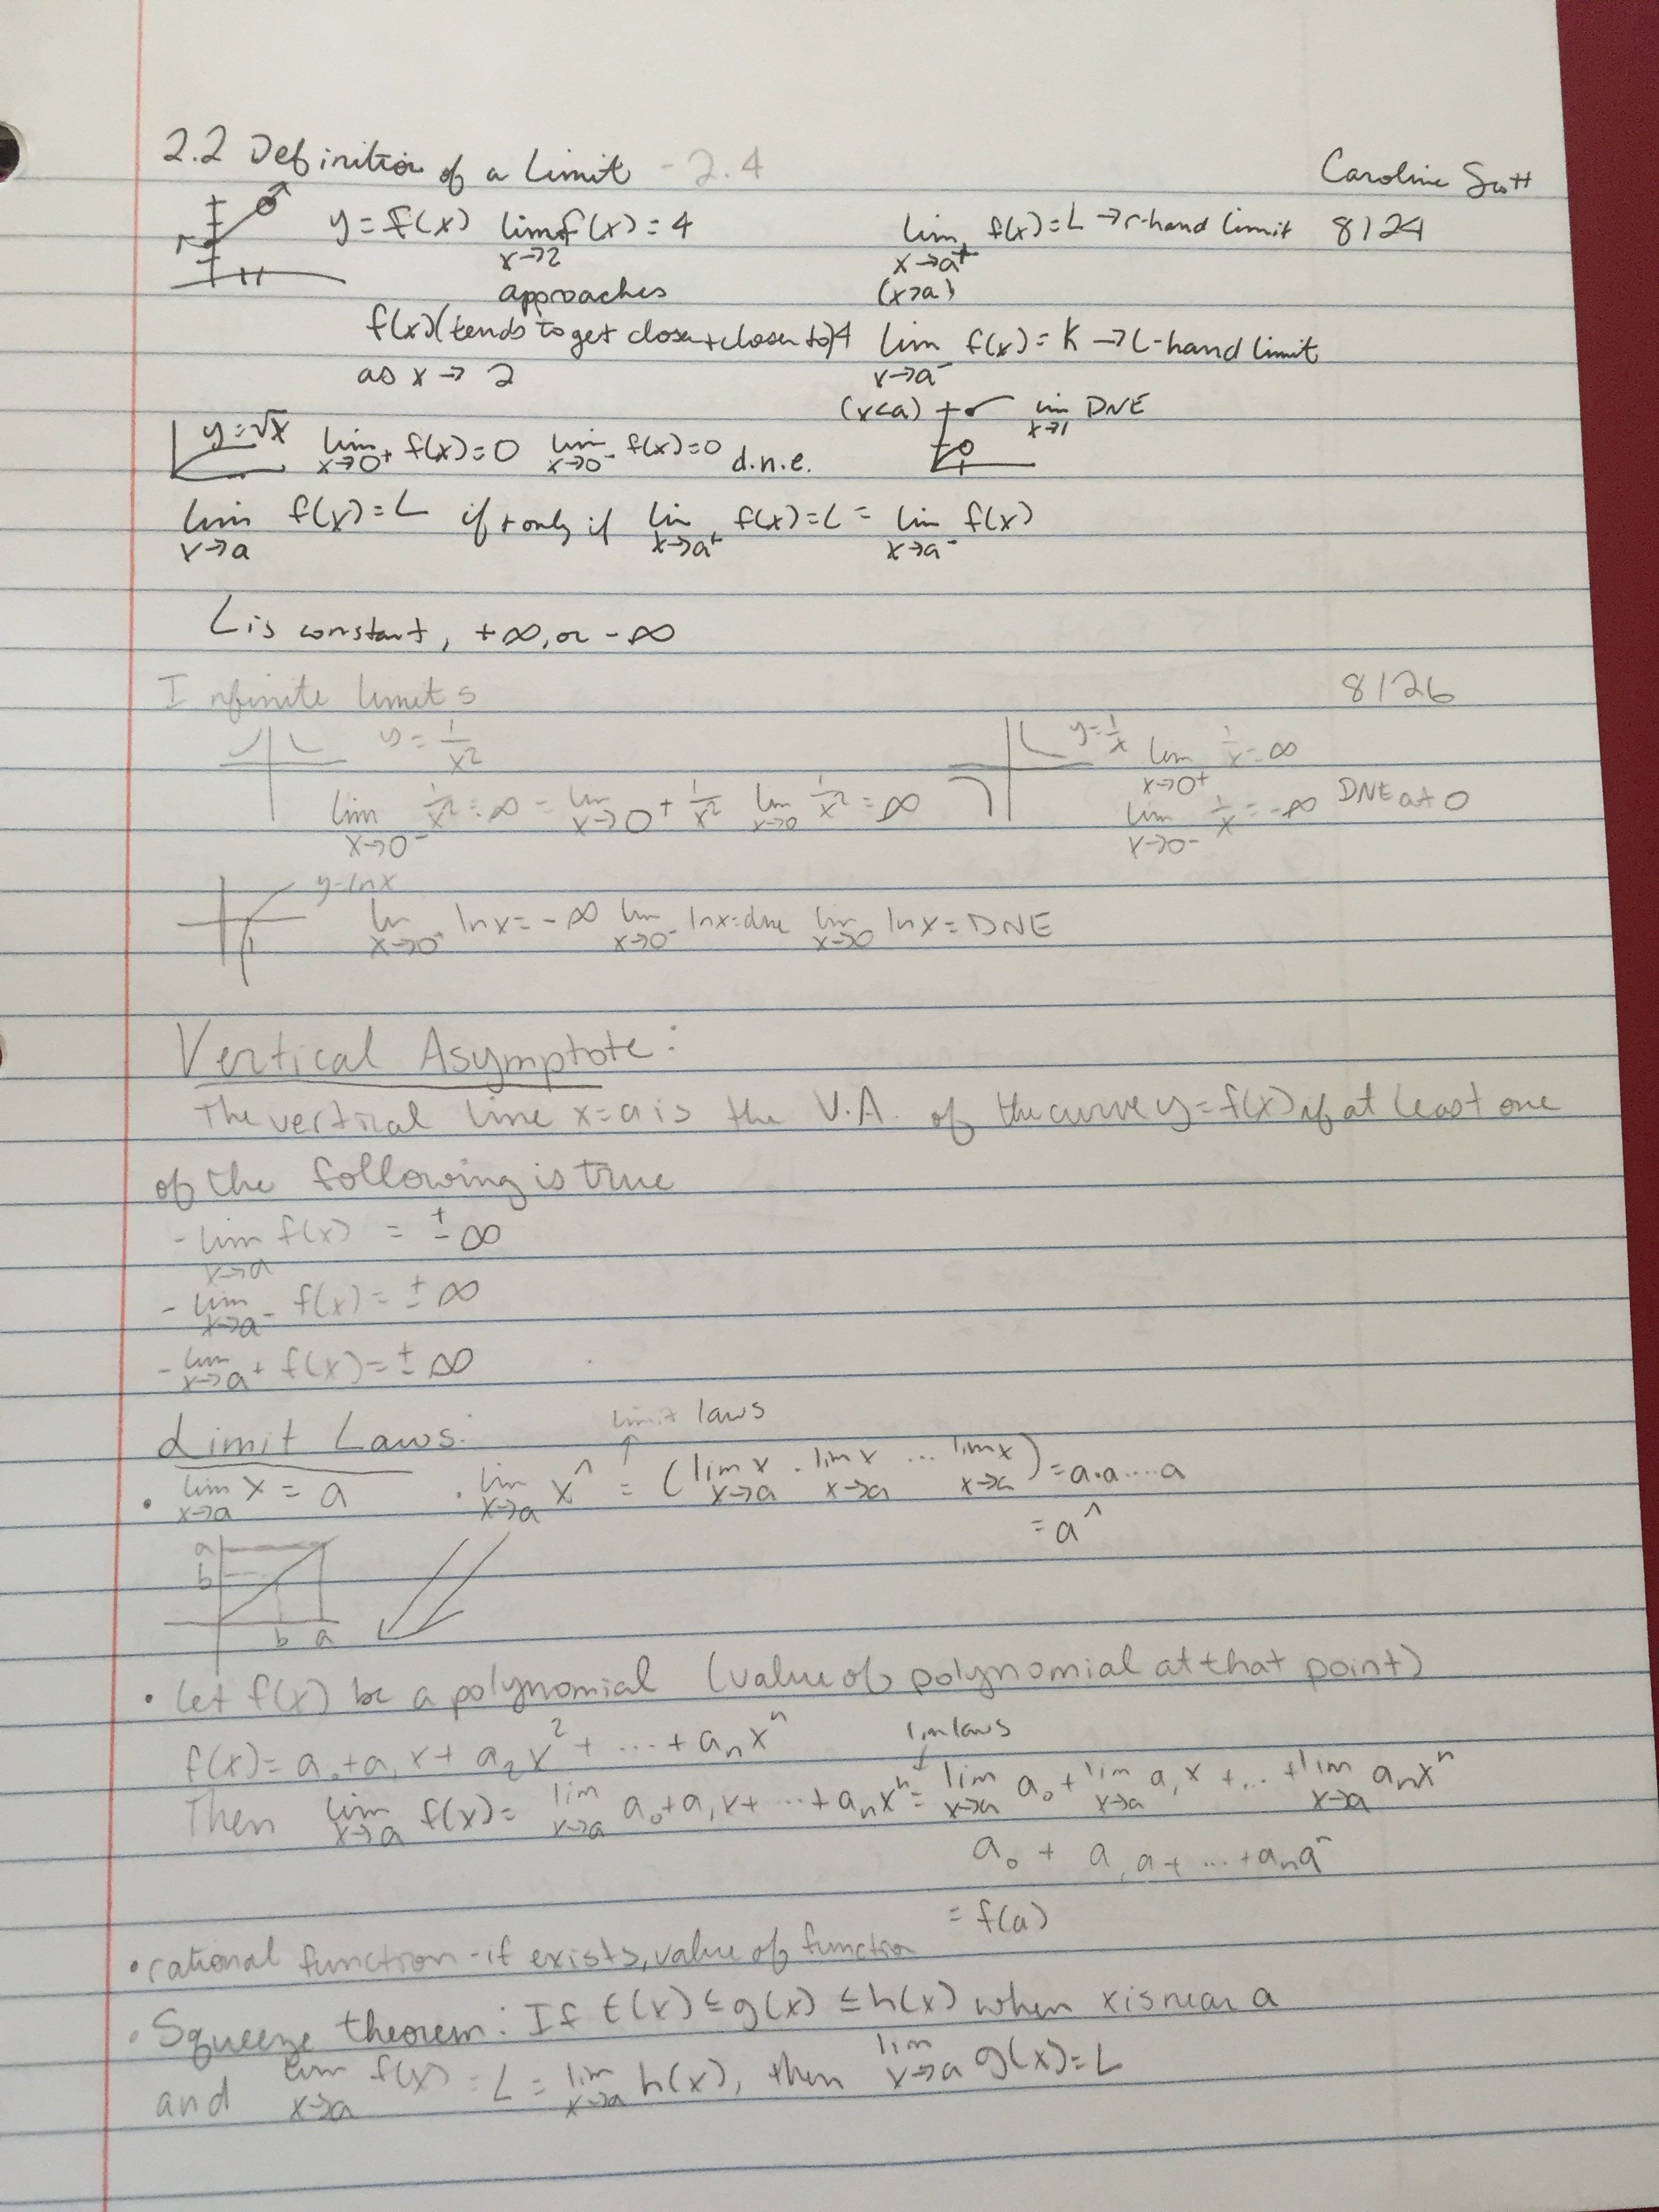 2.2 Definition of a Limit - 2.4
Caroline Scott
y = f(x) lim x→2 f(x) = 4
lim x→a⁺ f(x) = L → r-hand limit 8/24
approaches (x>a)
f(x) (tends to get closer + closer to) 4
lim x→a⁻ f(x) = K → L-hand limit
as x → 2
(x<a) lim x→1 DNE
y = √x lim x→0⁺ f(x) = 0 lim x→0⁻ f(x) = 0 d.n.e.
lim x→a f(x) = L if + only if lim x→a⁺ f(x) = L = lim x→a⁻ f(x)
L is constant, +∞, or -∞
Infinite limits 8/26
y = 1/x²
y = 1/x lim x→0⁺ 1/x = ∞
lim x→0⁻ 1/x² = ∞ = lim x→0⁺ 1/x² lim x→0 1/x² = ∞
lim x→0⁻ 1/x = -∞ DNE at 0
y = ln x
1
lim x→0⁺ ln x = -∞ lim x→0⁻ ln x = dne lim x→0 ln x = DNE
Vertical Asymptote:
The vertical line x = a is the V.A. of the curve y = f(x) if at least one
of the following is true
- lim x→a f(x) = ± ∞
- lim x→a⁻ f(x) = ± ∞
- lim x→a⁺ f(x) = ± ∞
Limit Laws:
limit laws
↑
• lim x→a x = a
• lim x→a xⁿ = (lim x→a x · lim x→a x ... lim x→a x) = a·a····a
= aⁿ
a
b
b a
• Let f(x) be a polynomial (value of polynomial at that point)
f(x) = a₀ + a₁x + a₂x² + ... + aₙxⁿ
lim laws
↓
Then lim x→a f(x) = lim x→a a₀ + a₁x + ... + aₙxⁿ = lim x→a a₀ + lim x→a a₁x + ... + lim x→a aₙxⁿ
a₀ + a₁a + ... + aₙaⁿ
= f(a)
• rational function - if exists, value of function
• Squeeze theorem: If f(x) ≤ g(x) ≤ h(x) when x is near a
and lim x→a f(x) = L = lim x→a h(x), then lim x→a g(x) = L